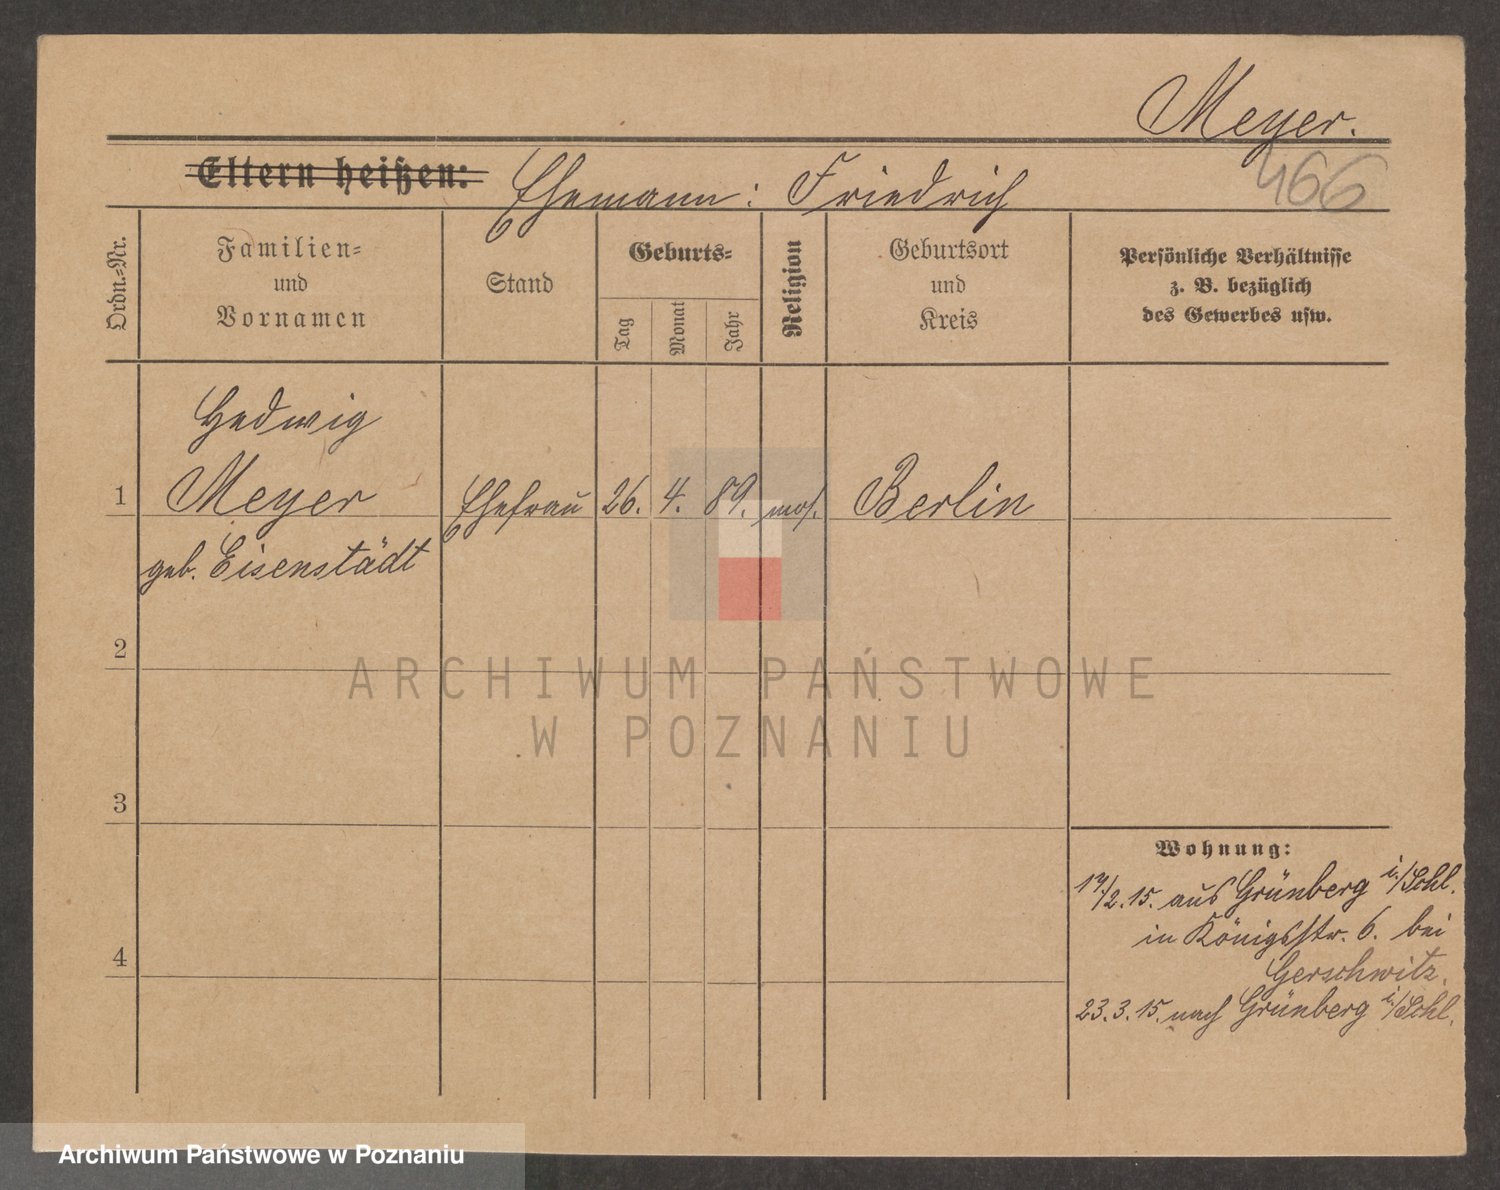 Meyer.
466
Eltern heißen: Ehemann: Friedrich
Ordn.-Nr.
Familien-
und
Vornamen
Stand
Geburts-
Tag
Monat
Jahr
Religion
Geburtsort
und
Kreis
Persönliche Verhältnisse
z. B. bezüglich
des Gewerbes usw.
Hedwig
1 Meyer Ehefrau 26. 4. 89. mos. Berlin
geb. Eisenstädt
2
ARCHIWUM PAŃSTWOWE
W POZNANIU
3
Wohnung:
17/2.15. aus Grünberg i./Schl.
in Königsstr. 6. bei
4
Gerschwitz.
23.3.15. nach Grünberg i./Schl.
Archiwum Państwowe w Poznaniu